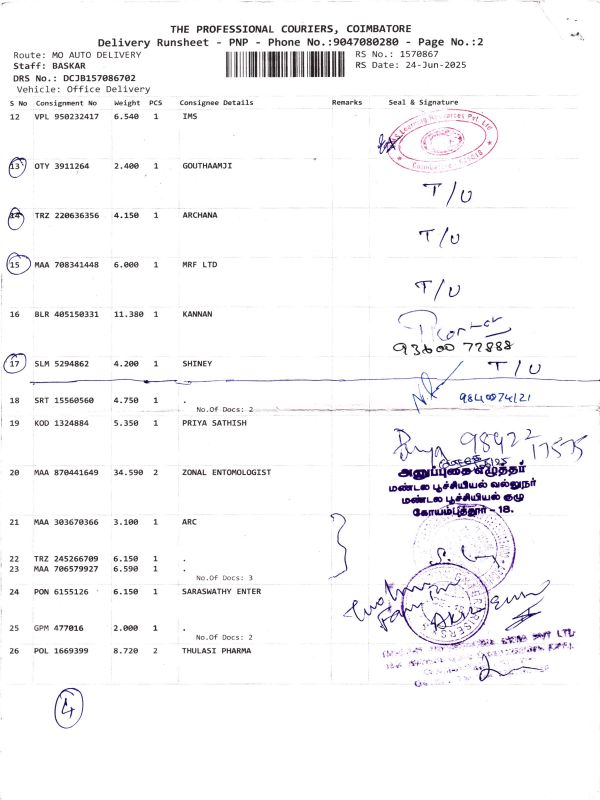 THE PROFESSIONAL COURIERS, COIMBATORE
Delivery Runsheet - PNP - Phone No.:9047080280 - Page No.:2
Route: MO AUTO DELIVERY RS No.: 1570867
Staff: BASKAR RS Date: 24-Jun-2025
DRS No.: DCJB157086702
Vehicle: Office Delivery
S No Consignment No Weight PCS Consignee Details Remarks Seal & Signature
12 VPL 950232417 6.540 1 IMS
Learning Resources Pvt. Ltd
Coimbatore
13 OTY 3911264 2.400 1 GOUTHAAMJI
T/U
14 TRZ 220636356 4.150 1 ARCHANA
T/U
15 MAA 708341448 6.000 1 MRF LTD
T/U
16 BLR 405150331 11.380 1 KANNAN
93600 72888
17 SLM 5294862 4.200 1 SHINEY T/U
18 SRT 15560560 4.750 1 .
No.Of Docs: 2
19 KOD 1324884 5.350 1 PRIYA SATHISH
Priya 98422 17575
20 MAA 870441649 34.590 2 ZONAL ENTOMOLOGIST
அனுப்புகை எழுத்தர்
மண்டல பூச்சியியல் வல்லுநர்
மண்டல பூச்சியியல் குழு
கோயம்புத்தூர் - 18.
21 MAA 303670366 3.100 1 ARC
22 TRZ 245266709 6.150 1 .
23 MAA 706579927 6.590 1 .
No.Of Docs: 3
24 PON 6155126 6.150 1 SARASWATHY ENTER
25 GPM 477016 2.000 1 .
No.Of Docs: 2
26 POL 1669399 8.720 2 THULASI PHARMA
4